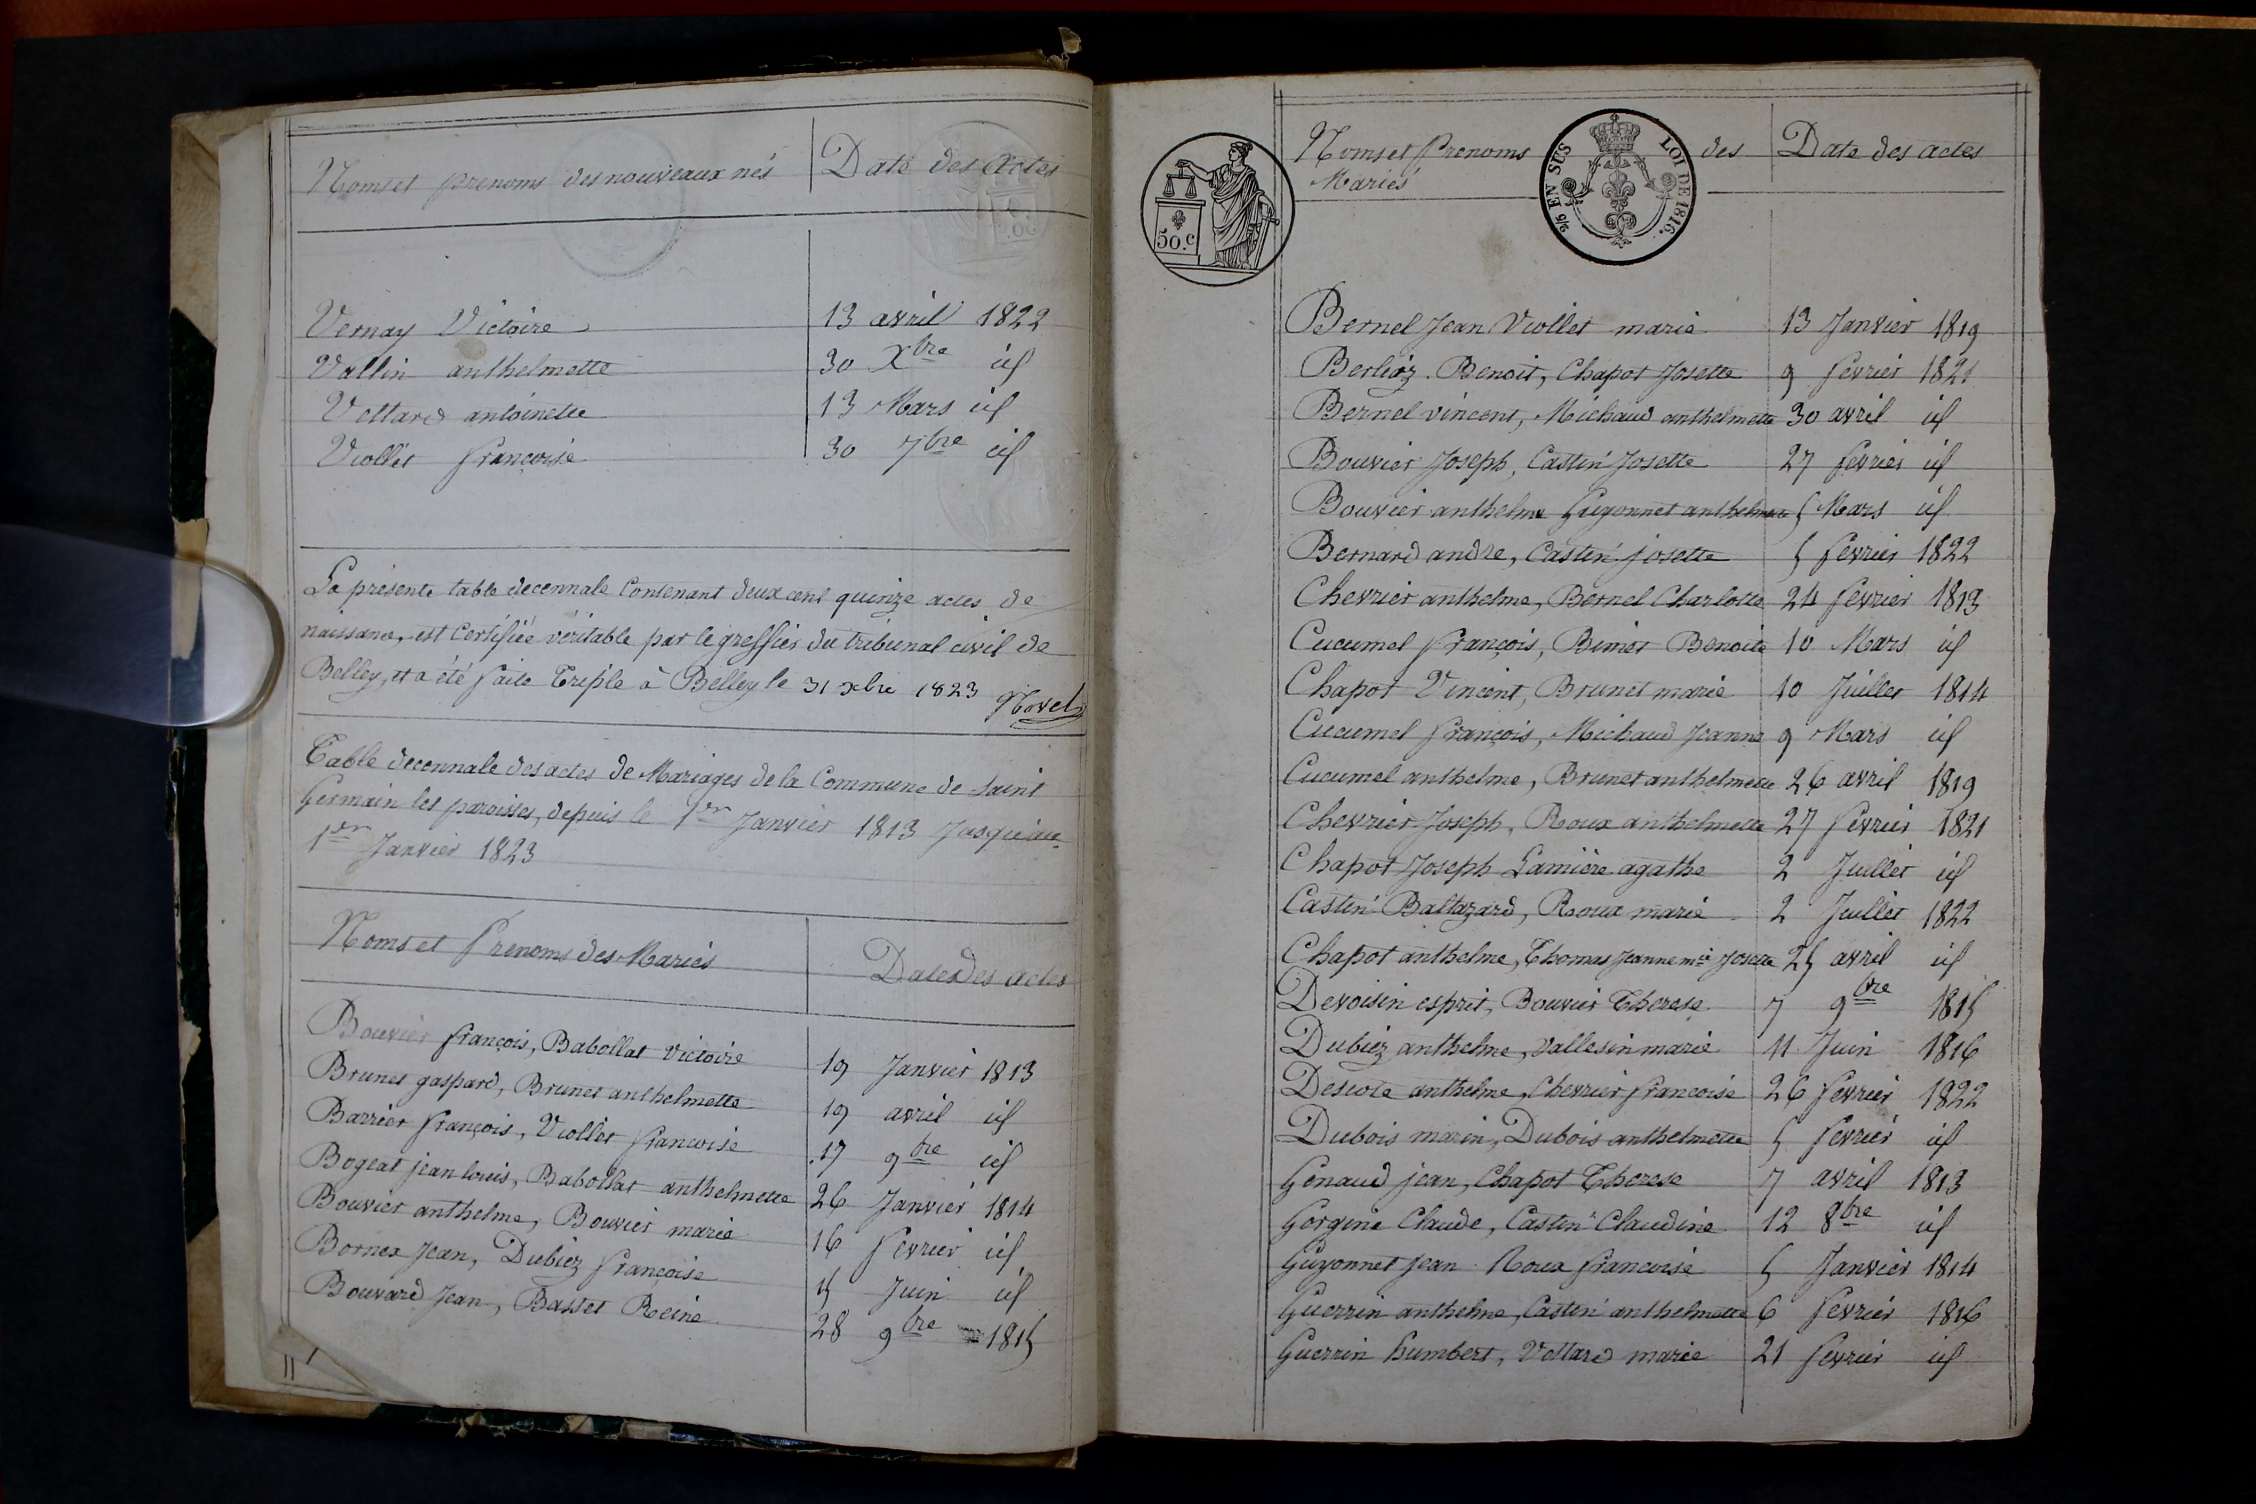 Noms et prenoms des nouveaux nés | Date des Actes
Vernay Victoire | 13 avril 1822
Vallin anthelmette | 30 Xbre id
Vettard antoinette | 13 Mars id
Viollet françoise | 30 7bre id
La présente table decennale Contenant deux cent quinze actes de
naissance, est Certifiée véritable par le greffier du tribunal civil de
Belley, et a été faite Triple à Belley le 31 xbre 1823
Table decennale des actes de Mariages de la Commune de Saint
Germain les paroisses, depuis le 1er Janvier 1813 Jusqu'au
1er Janvier 1823
Noms et Prenoms des Mariés | Date des actes
Bouvier françois, Babollat victoire | 19 Janvier 1813
Brunet gaspard, Brunet anthelmette | 19 avril id
Barrier françois, Viollet francoise | 17 9bre id
Bogeat jean louis, Babollat anthelmette | 26 Janvier 1814
Bouvier anthelme, Bouvier marie | 16 fevrier id
Bornex Jean, Dubiez françoise | 15 Juin id
Bouvard Jean, Basset Reine | 28 9bre 1815
50.c
2/5 EN SUS LOI DE 1816.
Noms et Prenoms des | Date des actes
Mariés
Bernel Jean Viollet marie | 13 Janvier 1819
Berlioz Benoit, Chapot Josette | 9 fevrier 1821
Bernel vincent, Michaud anthelmette | 30 avril id
Bouvier Joseph, Castin Josette | 27 fevrier id
Bouvier anthelme Guyonnet anthelmette | 5 Mars id
Bernard andre, Castin josette | 5 fevrier 1822
Chevrier anthelme, Bernel Charlotte | 24 fevrier 1813
Cucumel françois, Bimet Benoite | 10 Mars id
Chapot Vincent, Brunet marie | 10 Juillet 1814
Cucumel françois, Michaud Jeanne | 9 Mars id
Cucumel anthelme, Brunet anthelmette | 26 avril 1819
Chevrier Joseph, Roux anthelmette | 27 fevrier 1821
Chapot Joseph Lamière agathe | 2 Juillet id
Castin Baltazard, Roux marie | 2 Juillet 1822
Chapot anthelme, Thomas Jeanne mie Josette | 25 avril id
Devoisin esprit, Bouvier Therese | 7 9bre 1815
Dubiez anthelme, vallesin marie | 11 Juin 1816
Descote anthelme, Chevrier francoise | 26 fevrier 1822
Dubois marin, Dubois anthelmette | 5 fevrier id
Genaud jean, Chapot Therese | 7 avril 1813
Gorgine Claude, Castin Claudine | 12 8bre id
Guyonnet Jean Roux francoise | 5 Janvier 1814
Guerrin anthelme, Castin anthelmette | 6 fevrier 1816
Guerrin humbert, Vettard marie | 21 fevrier id